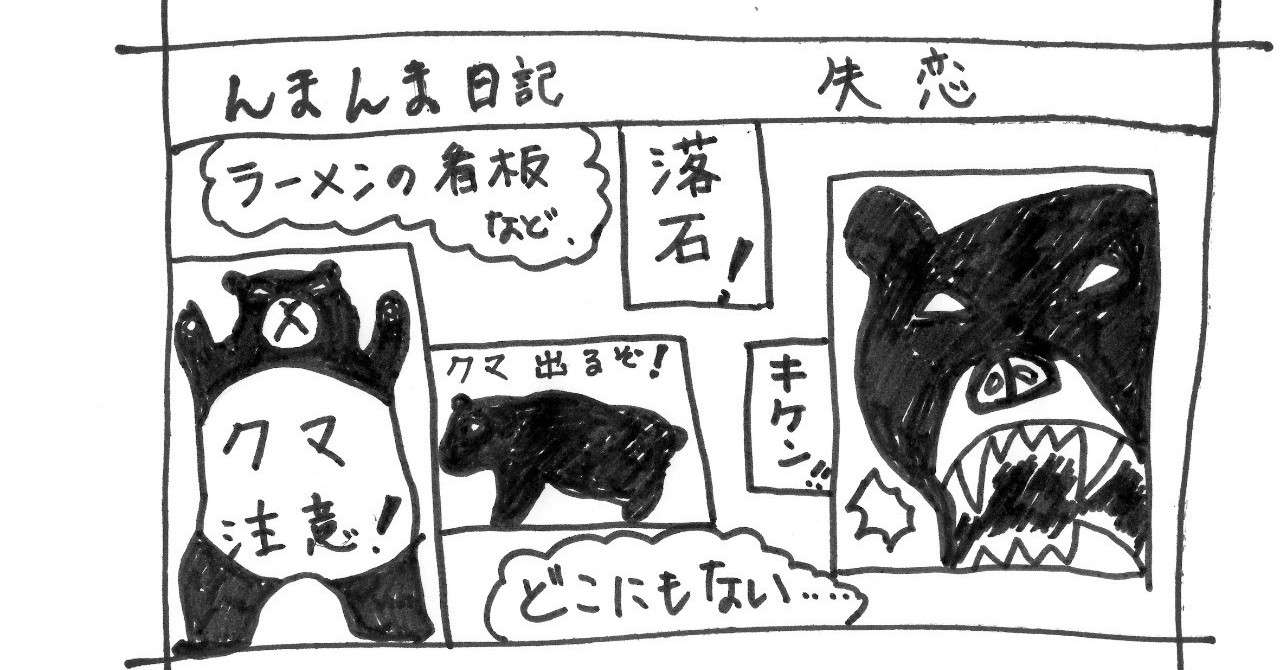 んまんま日記 失恋
ラーメンの看板
など.
落石!
クマ注意!
クマ出るぞ!
キケン!!
どこにもない‥‥